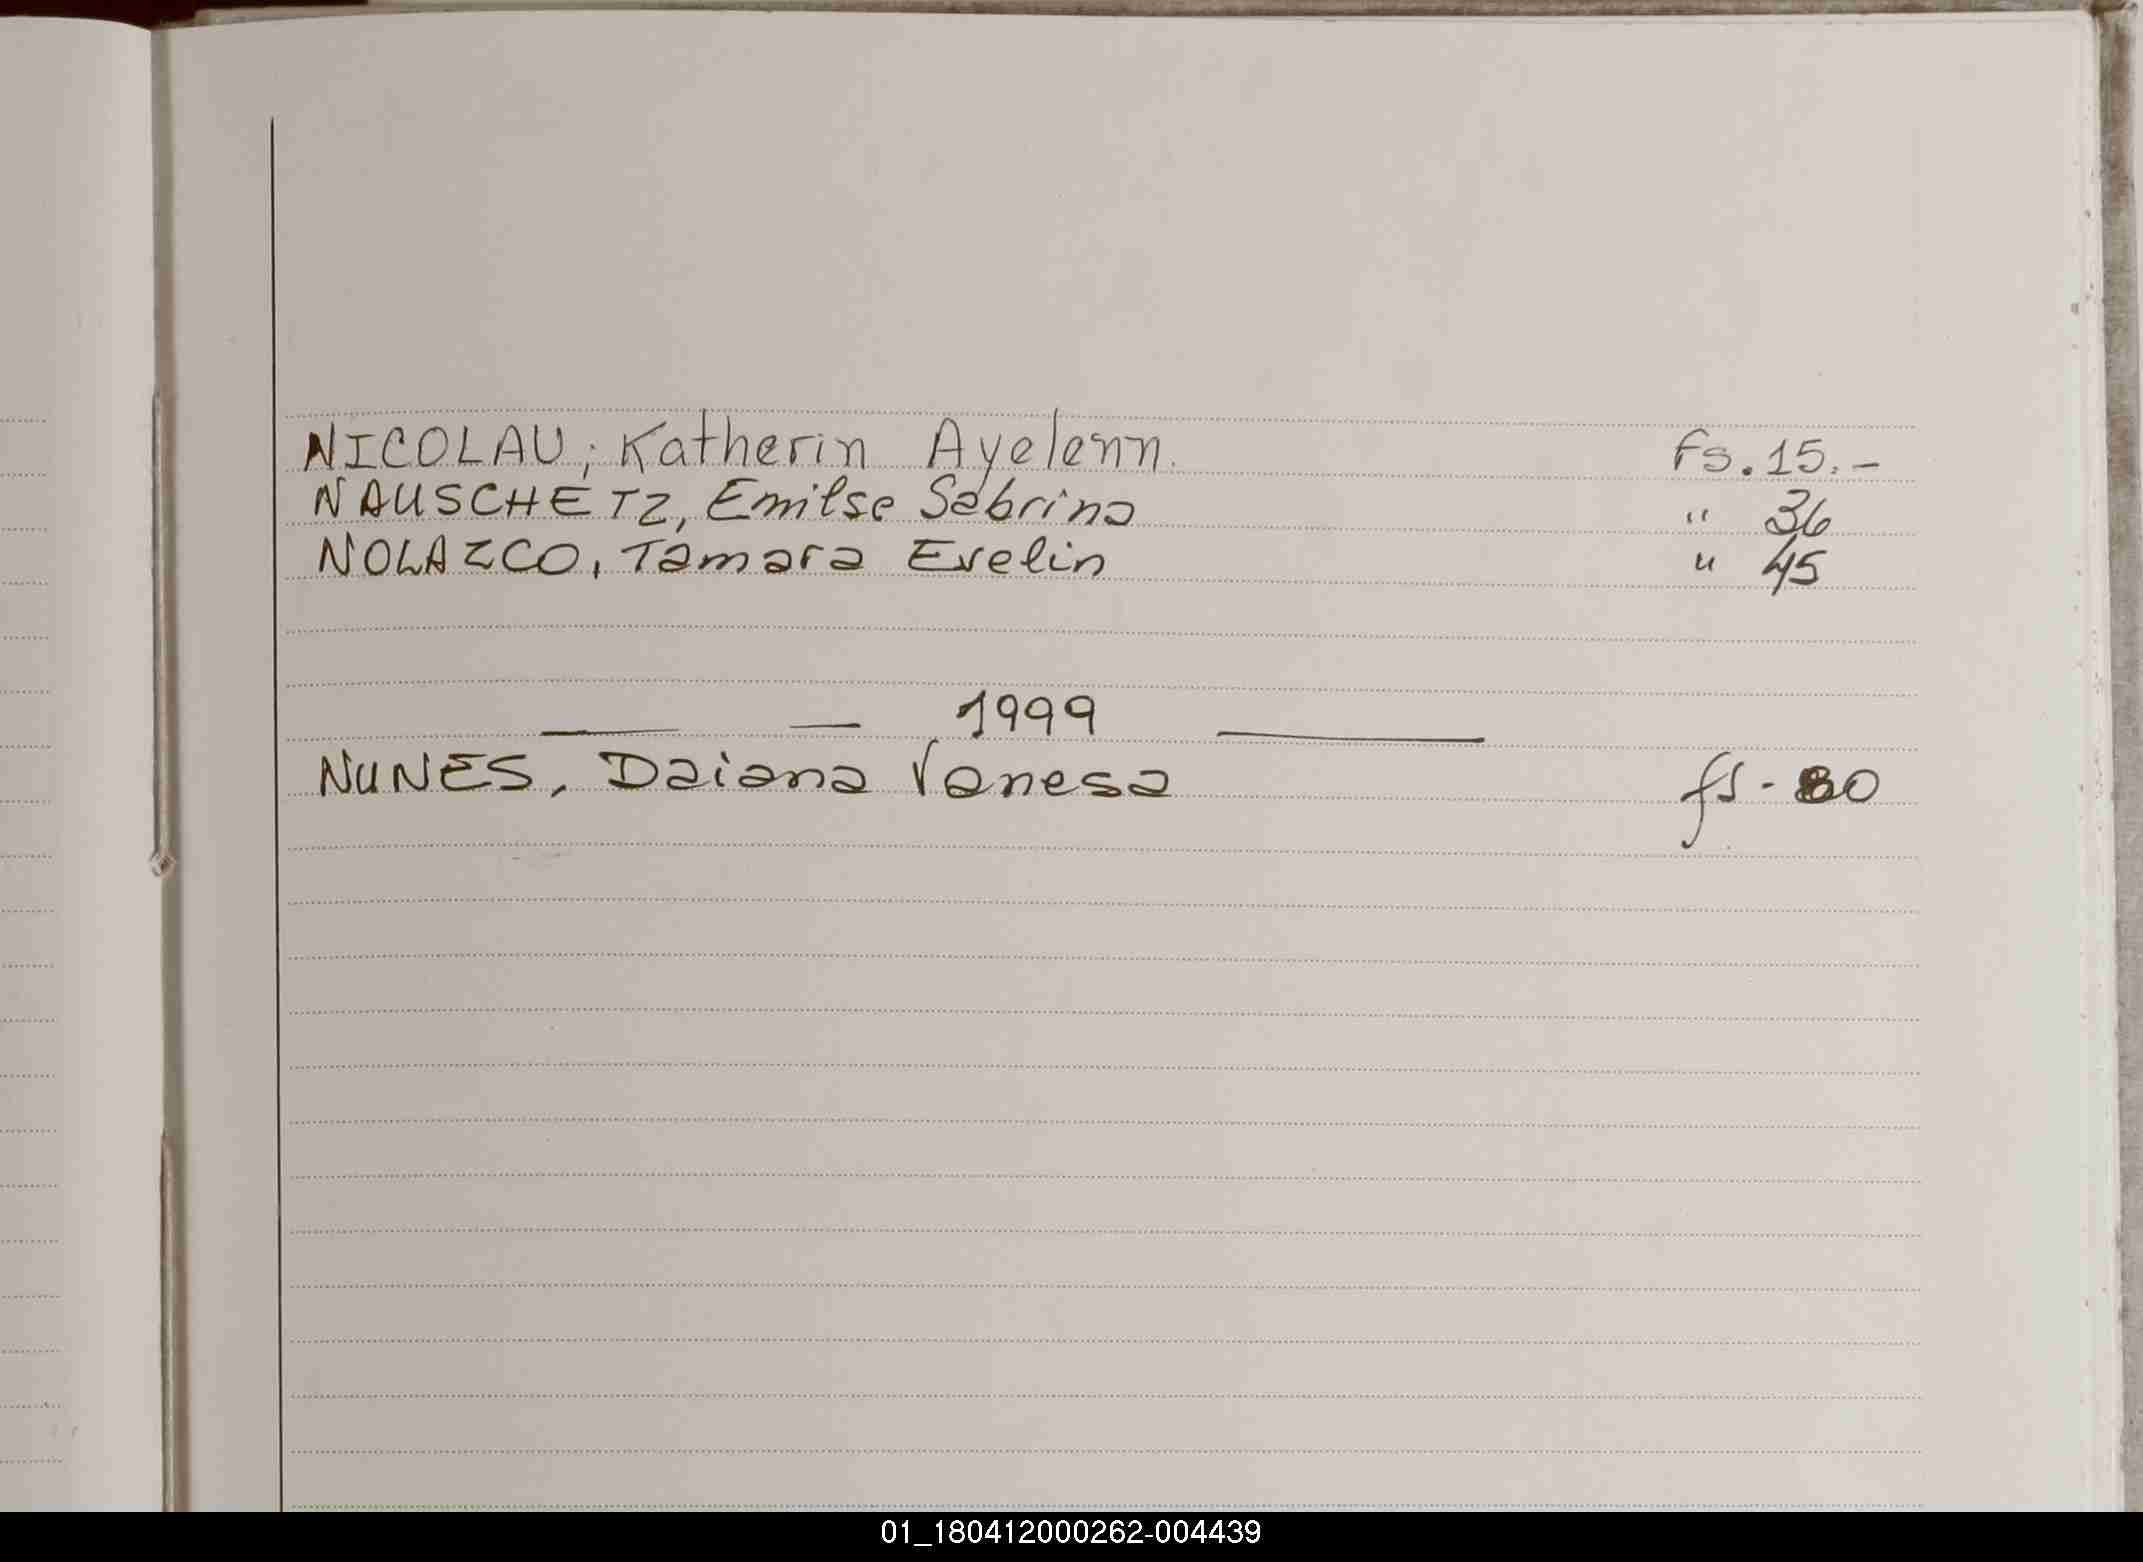 NICOLAU, Katherin Ayelenn. Fs. 15.-
NAUSCHETZ, Emilse Sabrina " 36
NOLAZCO, Tamara Evelin " 45
— — 1999 —
NUNES, Daiana Vanesa fs - 80
01_180412000262-004439